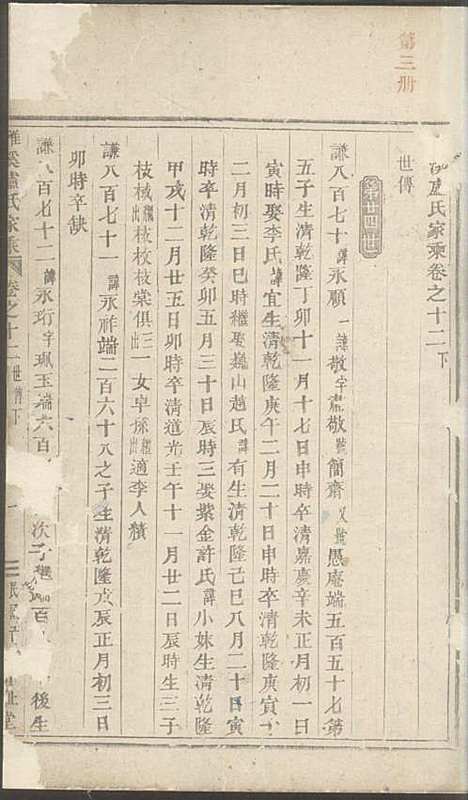 第三册
盧氏家乘卷之十二下
世傳
謙八百七十諱永順一諱敬字肅敬號簡齋又號愚庵端五百五十七第
五子生清乾隆丁卯十一月十七日申時卒清嘉慶辛未正月初一日
寅時娶李氏諱宜生清乾隆庚午二月二十日申時卒清乾隆庚寅十
二月初三日巳時繼娶巍山趙氏諱有生清乾隆己巳八月二十日寅
時卒清乾隆癸卯五月三十日辰時三娶紫金許氏諱小妹生清乾隆
甲戌十二月廿五日卯時卒清道光壬午十一月廿二日辰時生三子
枝棫繼出枝枚枝棠俱三出一女卓保繼出適李人積
謙八百七十一諱永祚端二百六十八之子生清乾隆戊辰正月初三日
卯時卒缺
謙八百七十二諱永珩字珮玉端六百 次子 百 後生
雅溪盧氏家乘 卷之十二世傳下